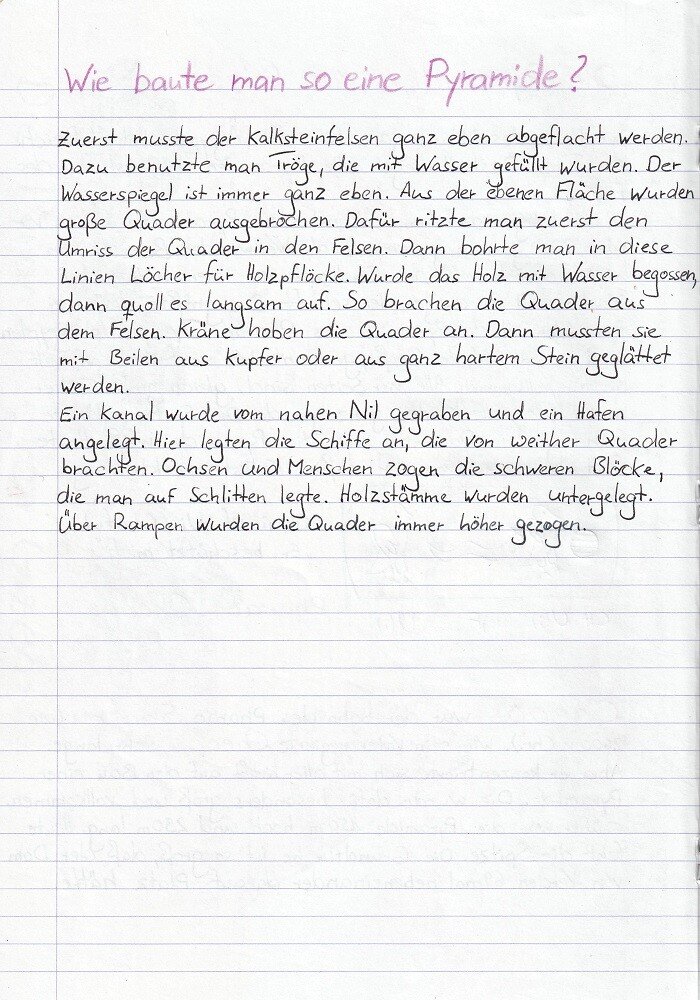 Wie baute man so eine Pyramide?
Zuerst musste der Kalksteinfelsen ganz eben abgeflacht werden.
Dazu benutzte man Tröge, die mit Wasser gefüllt wurden. Der
Wasserspiegel ist immer ganz eben. Aus der ebenen Fläche wurden
große Quader ausgebrochen. Dafür ritzte man zuerst den
Umriss der Quader in den Felsen. Dann bohrte man in diese
Linien Löcher für Holzpflöcke. Wurde das Holz mit Wasser begossen,
dann quoll es langsam auf. So brachen die Quader aus
dem Felsen. Kräne hoben die Quader an. Dann mussten sie
mit Beilen aus Kupfer oder aus ganz hartem Stein geglättet
werden.
Ein Kanal wurde vom nahen Nil gegraben und ein Hafen
angelegt. Hier legten die Schiffe an, die von weither Quader
brachten. Ochsen und Menschen zogen die schweren Blöcke,
die man auf Schlitten legte. Holzstämme wurden untergelegt.
Über Rampen wurden die Quader immer höher gezogen.